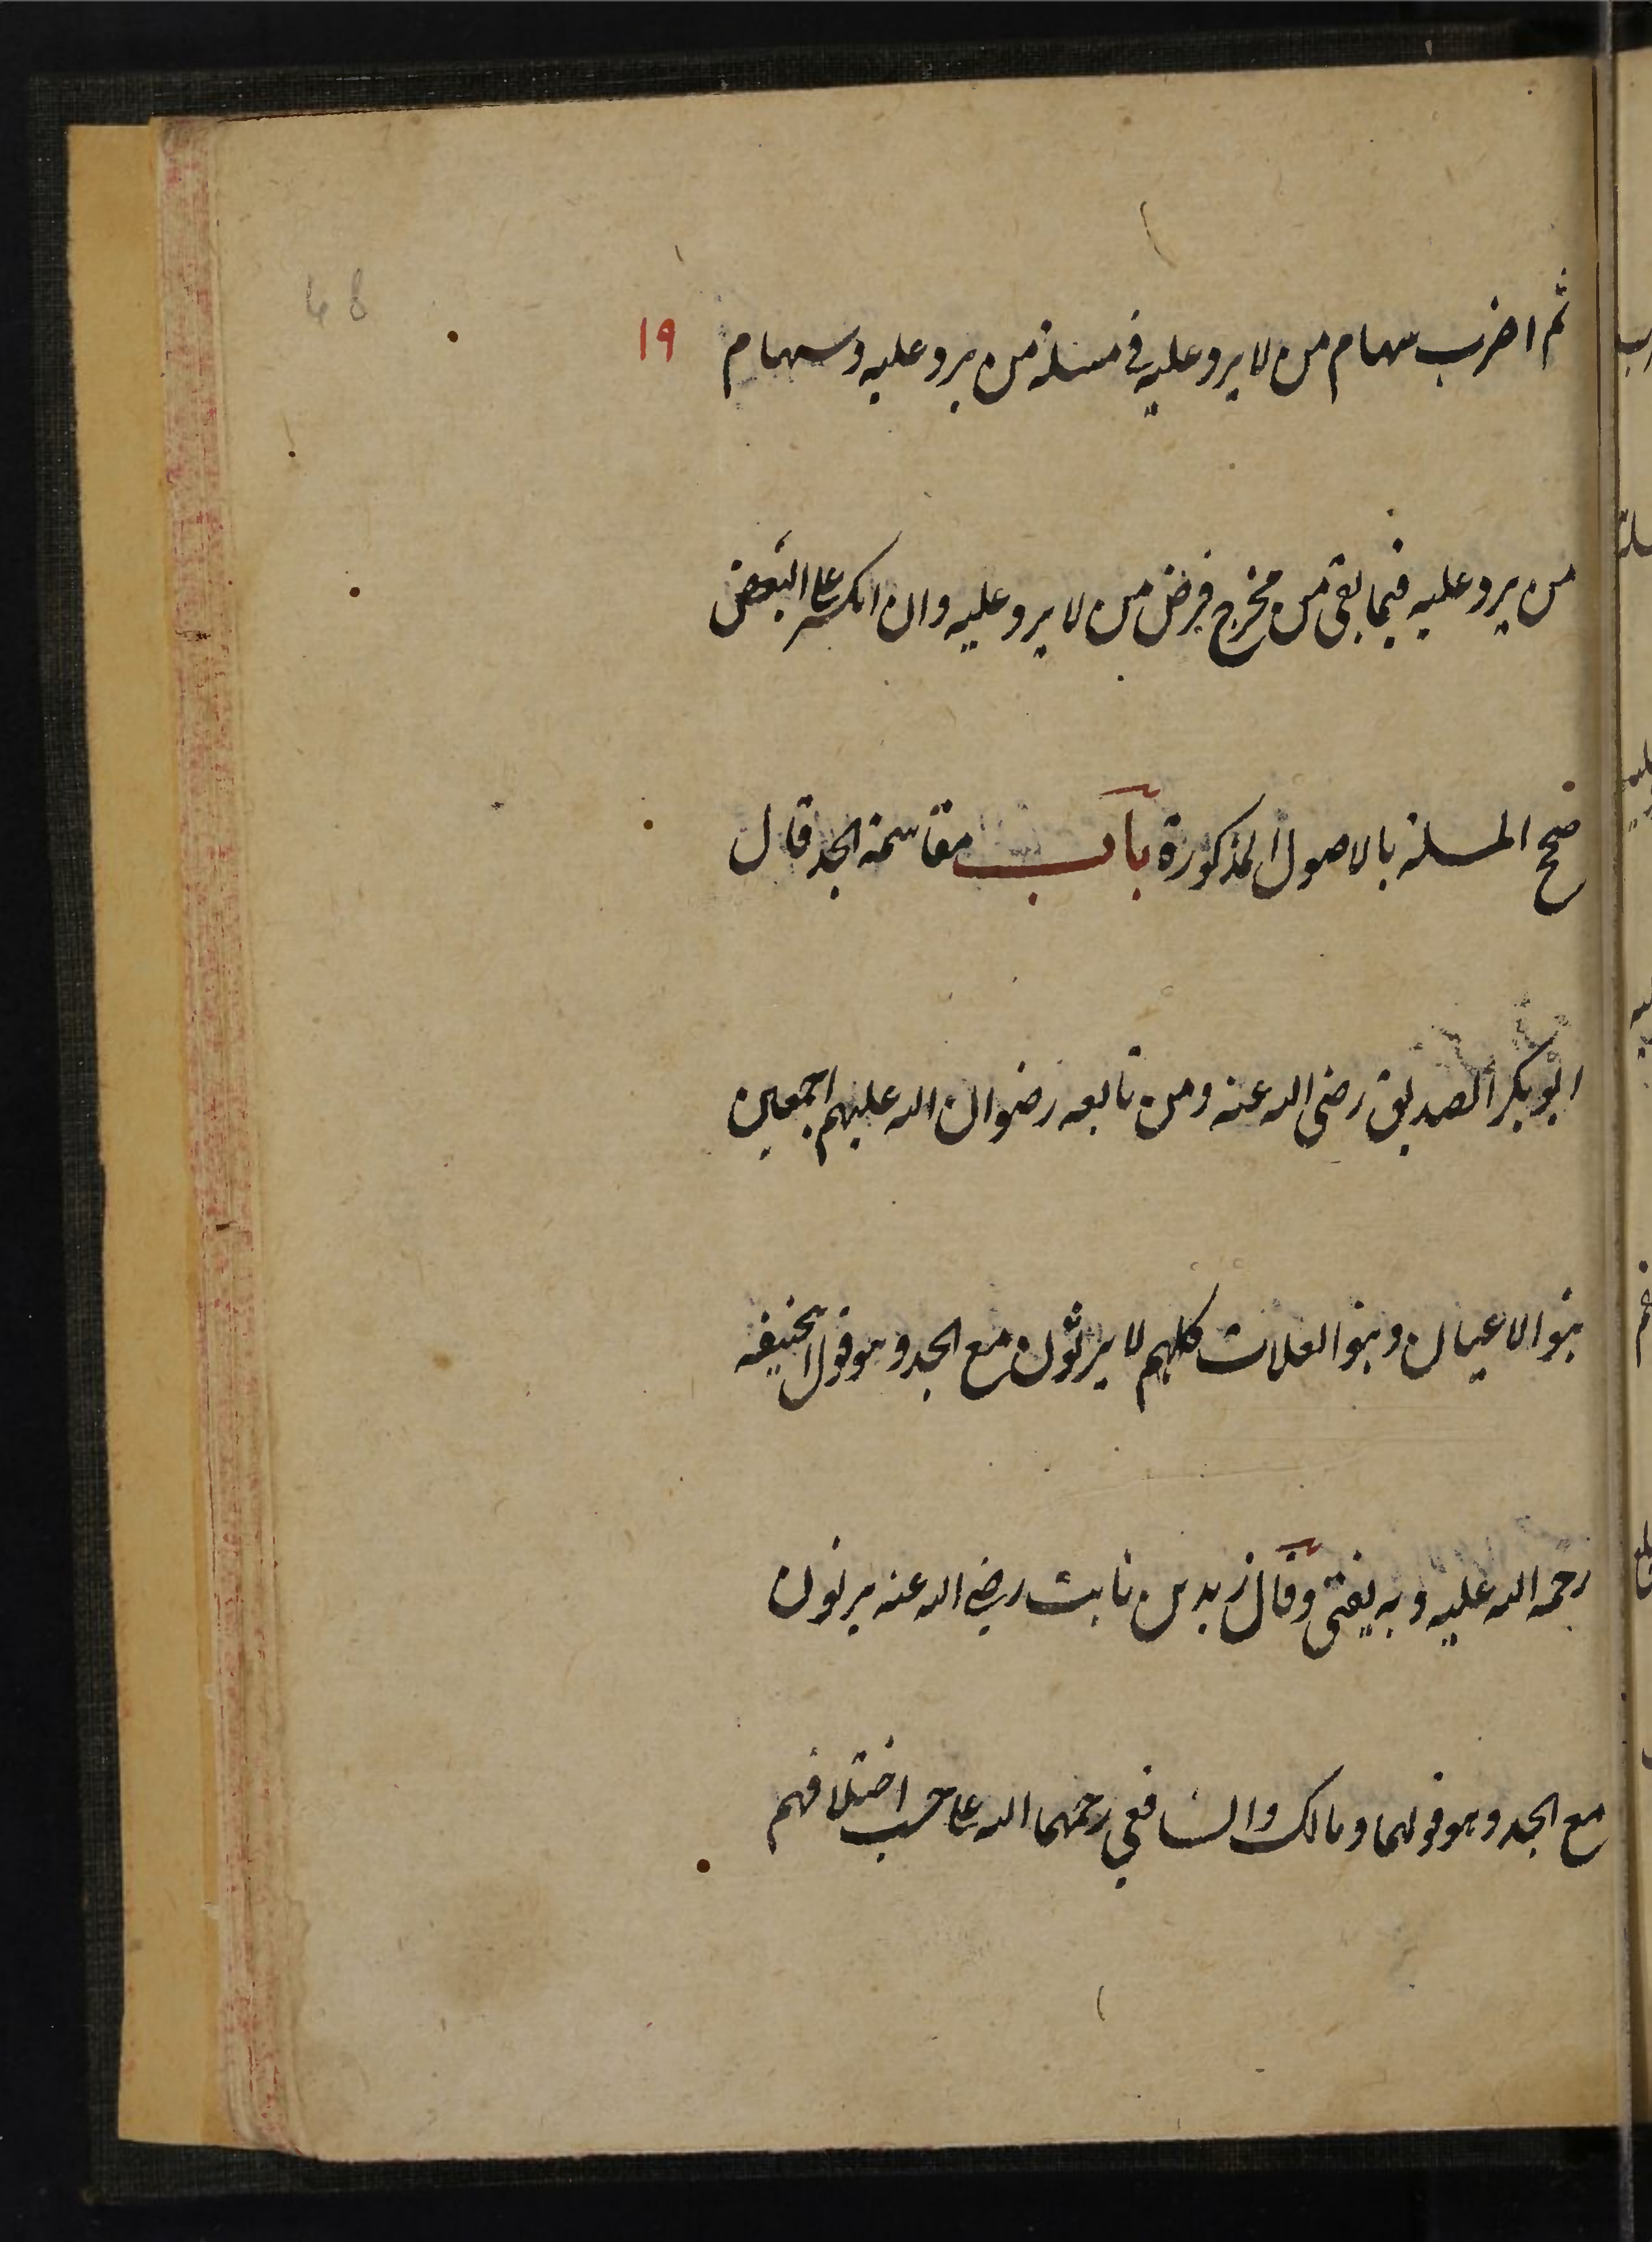 ثم اضرب سهام من لا يرد عليه في مسئلة من يرد عليه وسهام ١٩
من يرد عليه فيما بقى من مخرج فرض من لا يرد عليه وان انكسر على البعض
صحح المسئلة بالاصول المذكورة باب مقاسمة الجد قال
ابو بكر الصديق رضى الله عنه ومن تابعه رضوان الله عليهم اجمعين
بنو الاعيان وبنو العلات كلهم لا يرثون مع الجد وهو قول ابيحنيفه
رحمه الله عليه وبه يفتى وقال زيد بن ثابت رضى الله عنه يرثون
مع الجد وهو قولهما ومالك والشافعي رحمهما الله على حسب اختلافهم